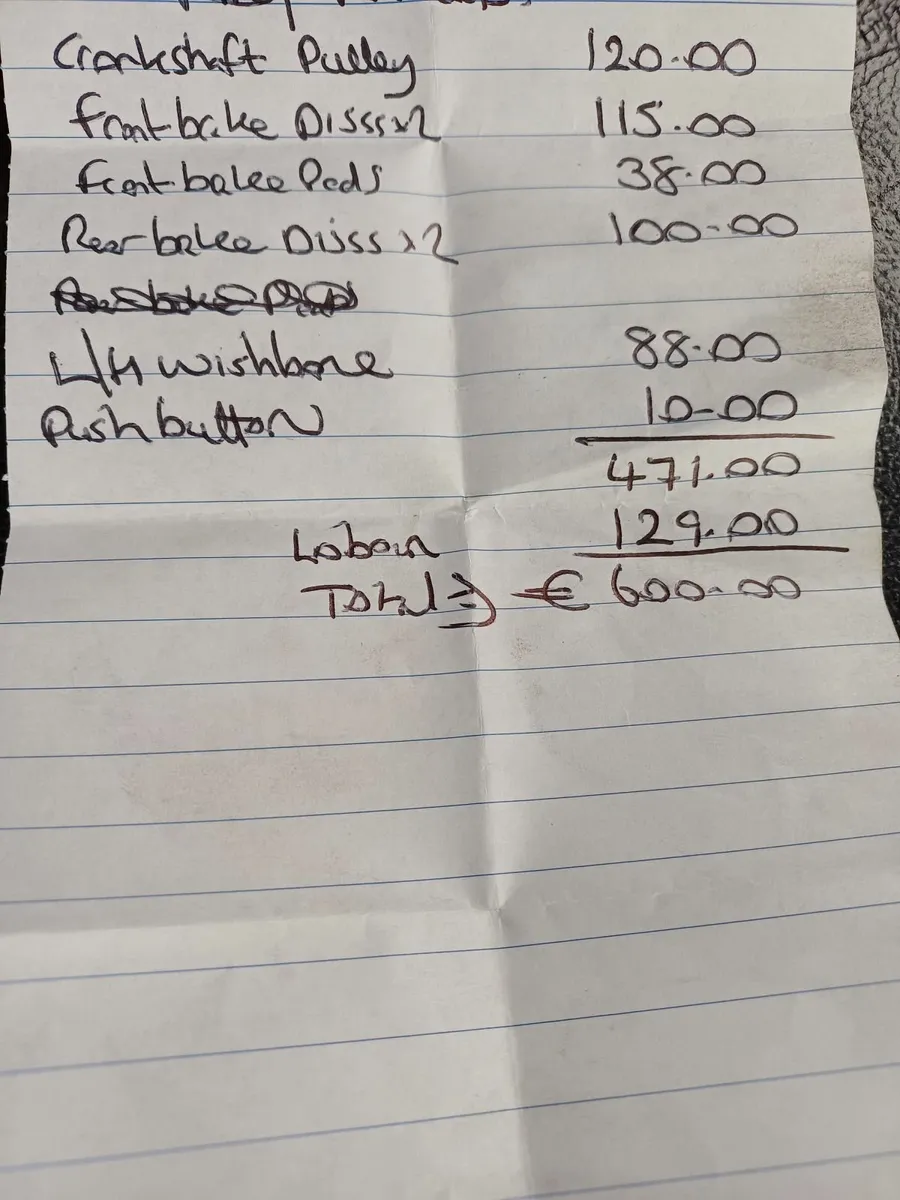 Crankshaft Pulley 120.00
front brake Discs x2 115.00
front brake Pads 38.00
Rear brake Discs x2 100-00
L/H wishbone 88.00
Push button 10-00
471.00
Labour 129.00
Total => € 600.00